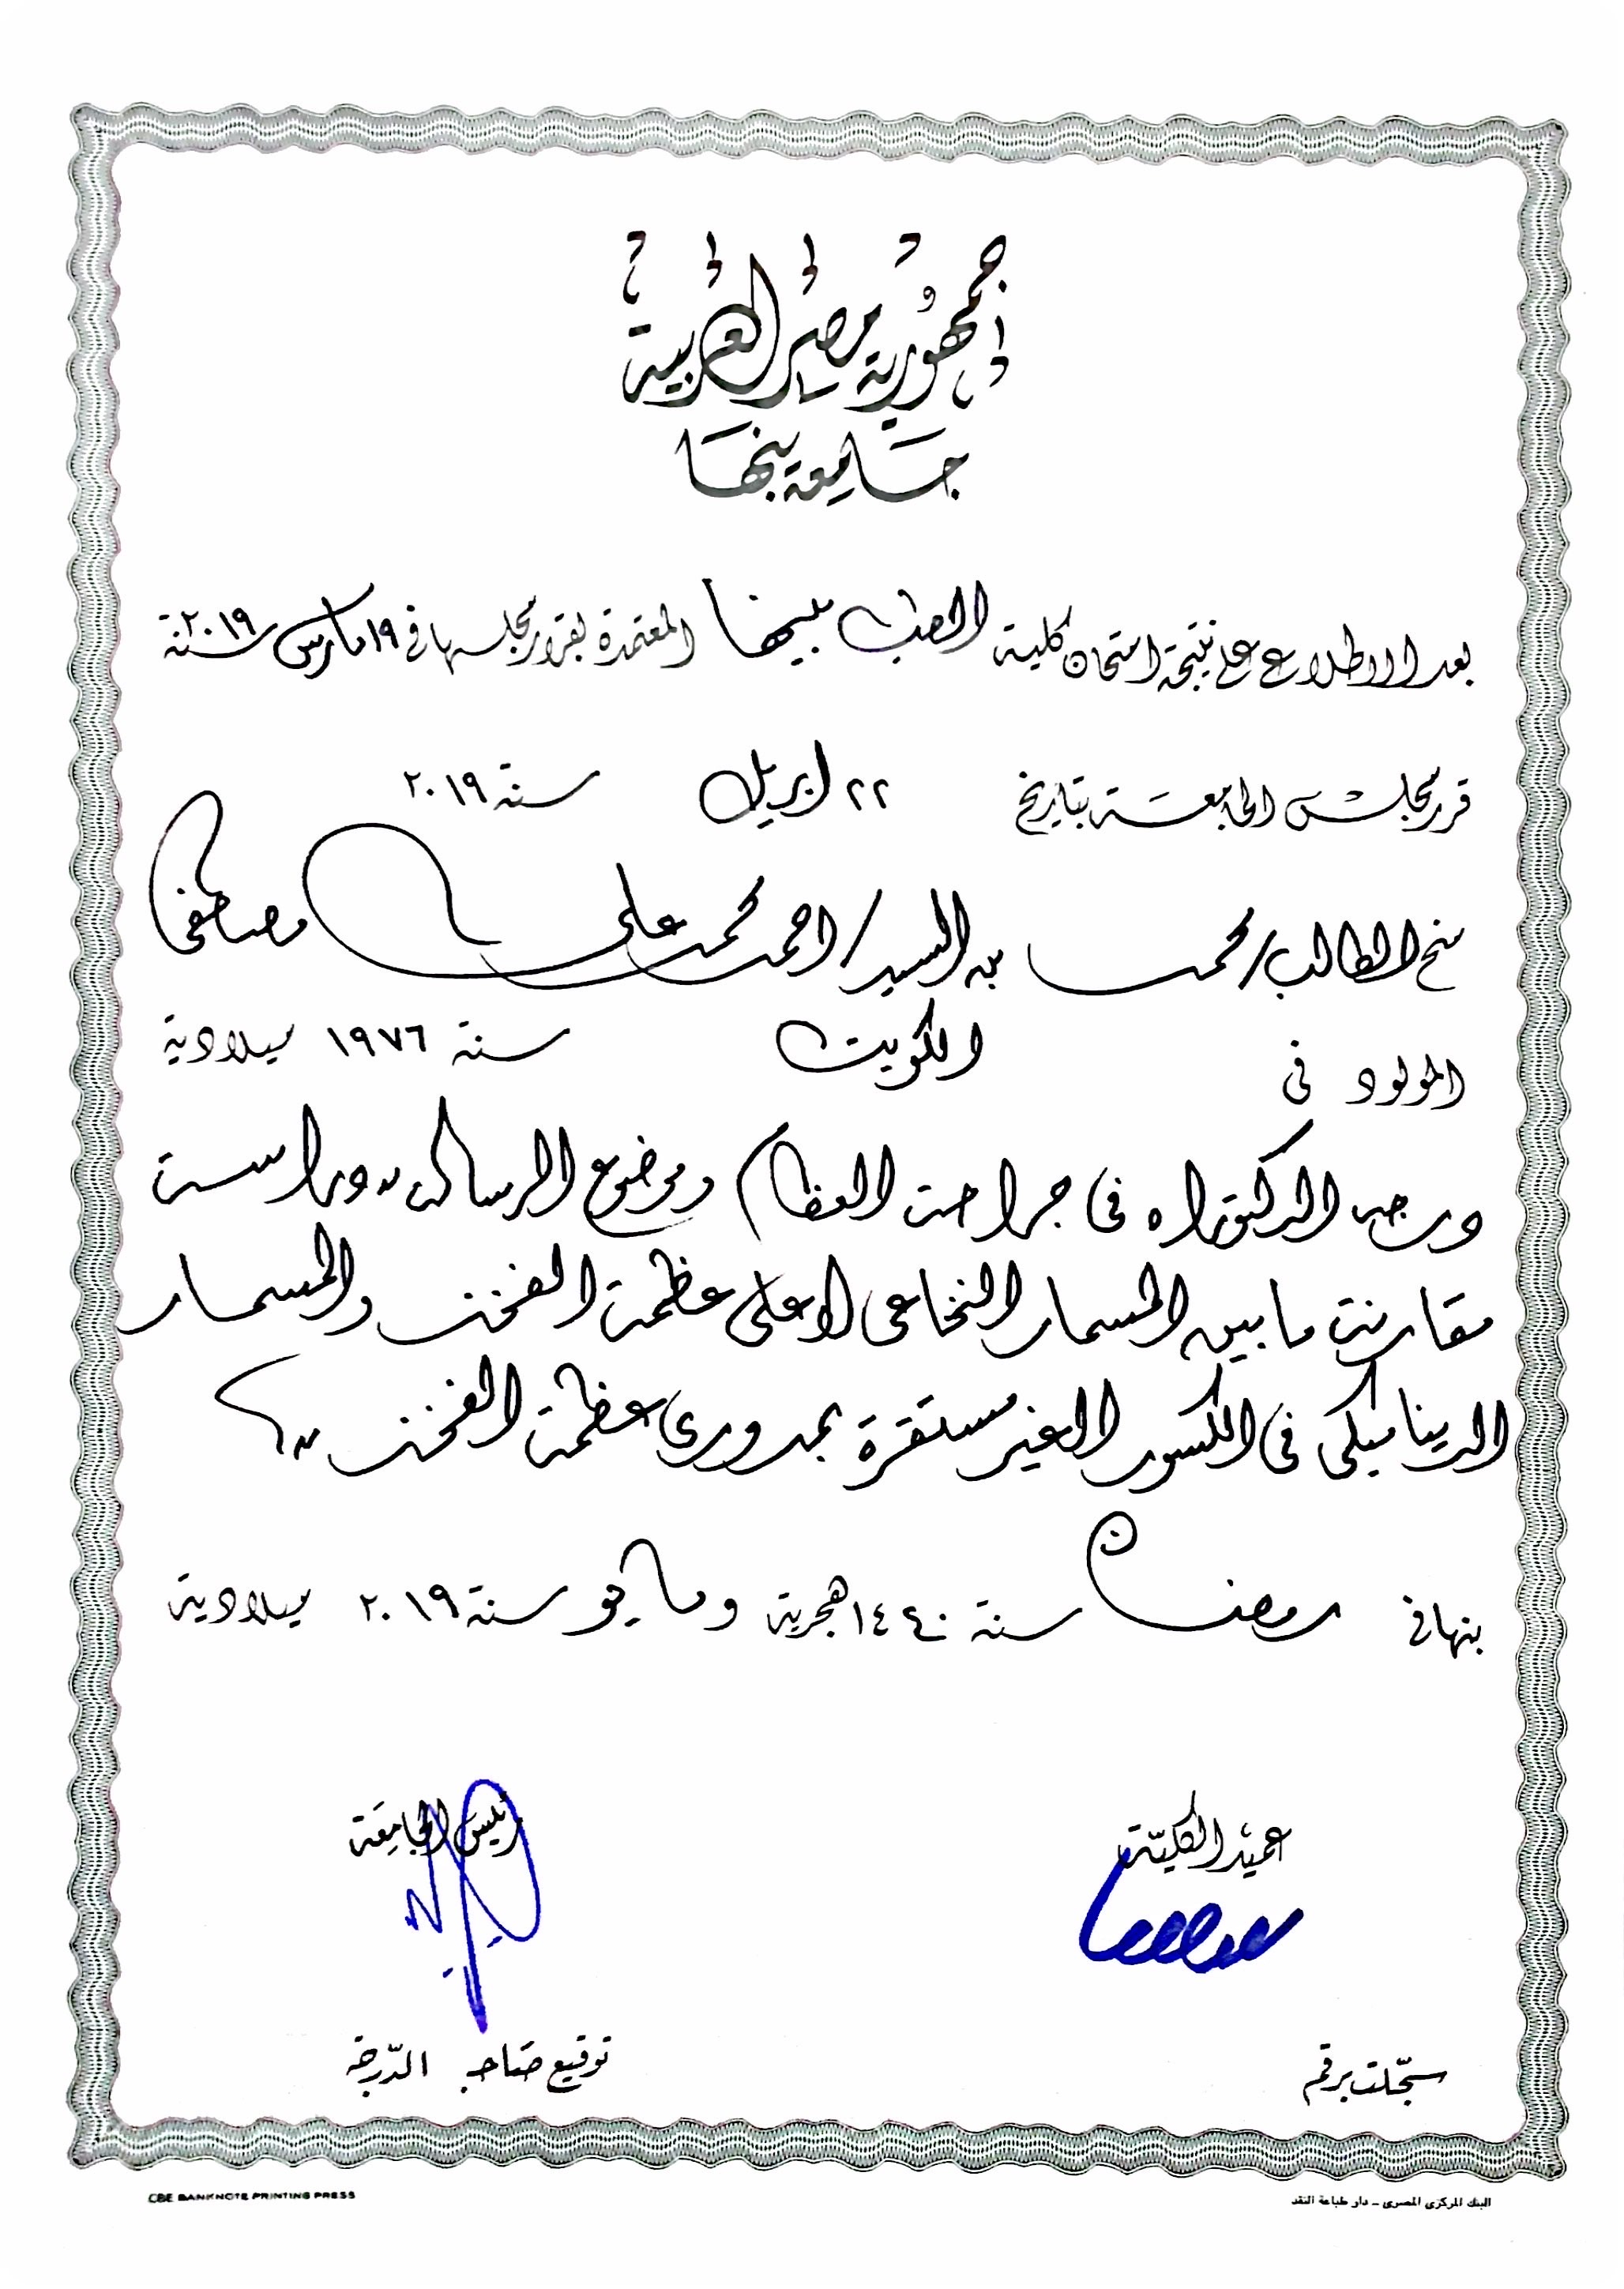 جمهورية مصر العربية
جامعة بنها
بعد الاطلاع على نتيجة امتحان كلية الطب ببنها المعتمدة بقرار مجلسها في ١٩ مارس سنة ٢٠١٩
قرر مجلس الجامعة بتاريخ ٢٢ ابريل سنة ٢٠١٩
منح الطالب / محمد بن السيد / احمد محمد على مصطفى
المولود فى الكويت سنة ١٩٧٦ ميلادية
درجة الدكتوراه فى جراحة العظام وموضوع الرسالة " دراسة
مقارنة ما بين المسمار النخاعى لاعلى عظمة الفخذ والمسمار
الديناميكى فى الكسور الغير مستقرة بمدورى عظمة الفخذ "
بنها في رمضان سنة ١٤٤٠ هجرية ومايو سنة ٢٠١٩ ميلادية
عميد الكلية رئيس الجامعة
سجلت برقم توقيع صاحب الدرجة
CBE BANKNOTE PRINTING PRESS البنك المركزى المصرى - دار طباعة النقد